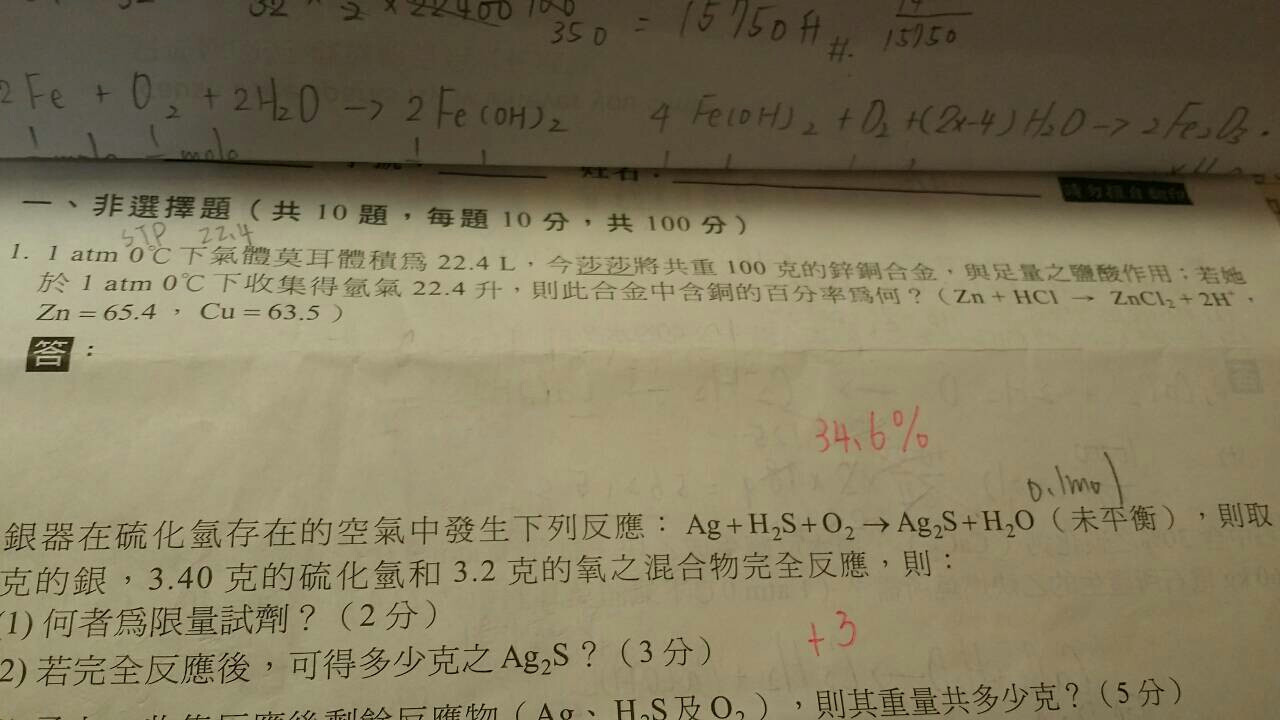 350 = 15750 #.
15750
2Fe + O₂ + 2H₂O → 2Fe(OH)₂ 4 Fe(OH)₂ + O₂ + (2x-4) H₂O → 2Fe₂O₃ ·
姓名:
一、非選擇題(共 10 題,每題 10 分,共 100 分)
STP 22.4
1. 1 atm 0℃下氣體莫耳體積為 22.4 L,今莎莎將共重 100 克的鋅銅合金,與足量之鹽酸作用;若她
於 1 atm 0℃下收集得氫氣 22.4 升,則此合金中含銅的百分率為何?(Zn + HCl → ZnCl₂ + 2H⁺,
Zn = 65.4 , Cu = 63.5 )
答:
34.6%
0.1mol
銀器在硫化氫存在的空氣中發生下列反應:Ag + H₂S + O₂ → Ag₂S + H₂O(未平衡),則取
克的銀,3.40 克的硫化氫和 3.2 克的氧之混合物完全反應,則:
(1) 何者為限量試劑?(2 分)
+3
2) 若完全反應後,可得多少克之 Ag₂S?(3 分)
收集反應後剩餘反應物(Ag、H₂S 及 O₂),則其重量共多少克?(5 分)